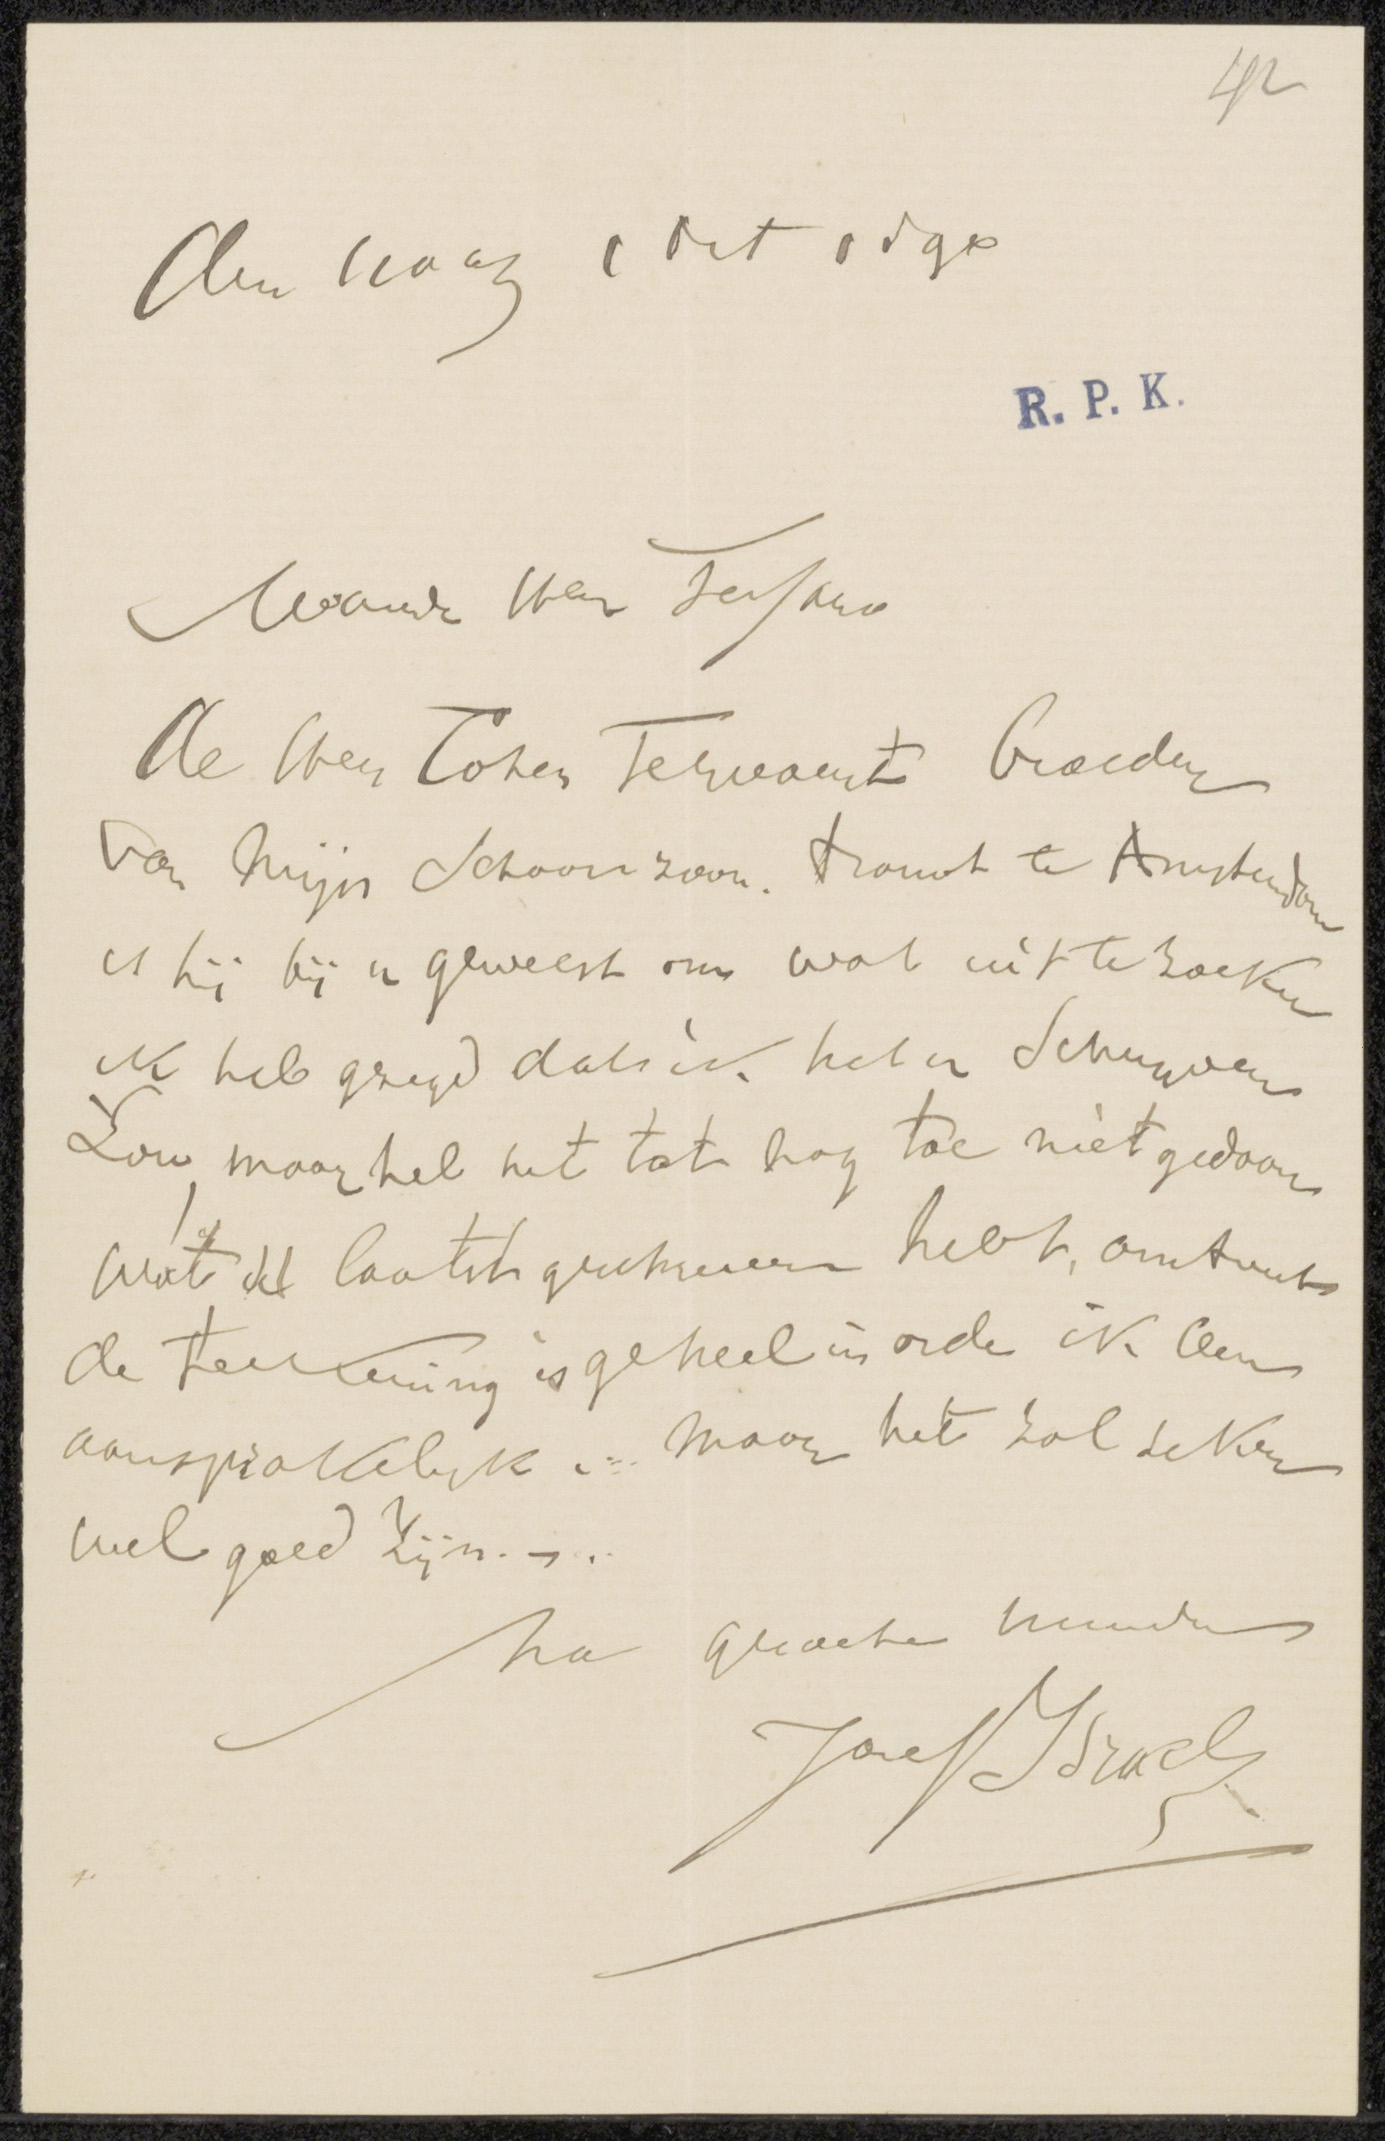 42
Den Haag 1 Oct
R. P. K.
Waarde Heer Tersteeg
De Heer Cohen Tervaert broeder
van mijn Schoonzoon. woont te Amsterdam
is hij bij u geweest om wat uit te zoeken
ik heb gezegd dat ik het u Schrijven
Zou, maar heb het tot nog toe niet gedaan
wat U laatst geschreven hebt, omtrent
de teekening is geheel in orde ik ben
aansprakelijk ... maar het zal zeker
wel goed Zijn. - ..
na groete
Jozef Israels